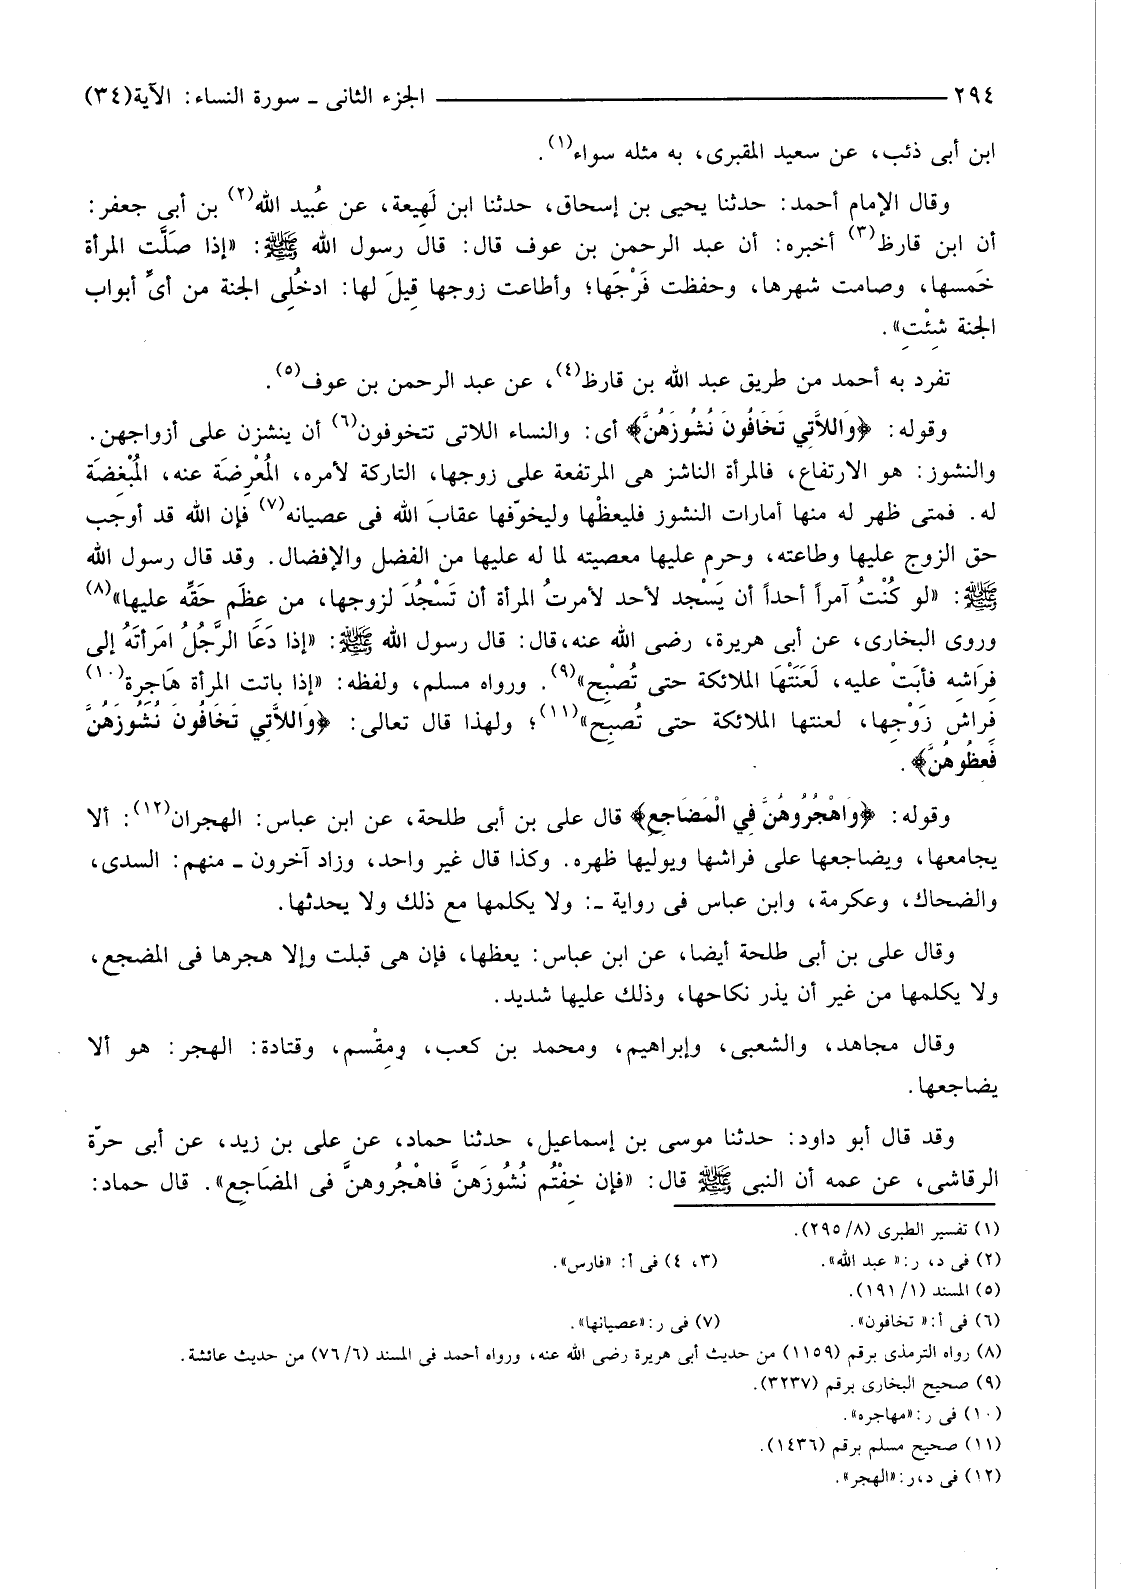 ٢٩٤ ــــــــــــــــــــ الجزء الثانى ـ سورة النساء: الآية(٣٤)
ابن أبى ذئب، عن سعيد المقبرى، به مثله سواء(١).
وقال الإمام أحمد: حدثنا يحيى بن إسحاق، حدثنا ابن لَهِيعة، عن عُبيد الله(٢) بن أبى جعفر:
أن ابن قارظ(٣) أخبره: أن عبد الرحمن بن عوف قال: قال رسول الله ﷺ: «إذا صلَّت المرأة
خَمسها، وصامت شهرها، وحفظت فَرْجَها؛ وأطاعت زوجها قِيلَ لها: ادخُلِى الجنة من أىِّ أبواب
الجنة شِئْتِ».
تفرد به أحمد من طريق عبد الله بن قارظ(٤)، عن عبد الرحمن بن عوف(٥).
وقوله: ﴿وَاللاَّتِي تَخَافُونَ نُشُوزَهُنَّ﴾ أى: والنساء اللاتى تتخوفون(٦) أن ينشزن على أزواجهن.
والنشوز: هو الارتفاع، فالمرأة الناشز هى المرتفعة على زوجها، التاركة لأمره، المُعْرِضَة عنه، المُبْغِضَة
له. فمتى ظهر له منها أمارات النشوز فليعظْها وليخوّفها عقابَ الله فى عصيانه(٧) فإن الله قد أوجب
حق الزوج عليها وطاعته، وحرم عليها معصيته لما له عليها من الفضل والإفضال. وقد قال رسول الله
ﷺ: «لو كُنْتُ آمراً أحداً أن يَسْجد لأحد لأمرتُ المرأة أن تَسْجُدَ لزوجها، من عِظَم حَقِّه عليها»(٨)
وروى البخارى، عن أبى هريرة، رضى الله عنه،قال: قال رسول الله ﷺ: «إذا دَعَا الرَّجُلُ امرَأتَهُ إلى
فِرَاشِه فأبَتْ عليه، لَعَنَتْهَا الملائكة حتى تُصْبِح»(٩). ورواه مسلم، ولفظه: «إذا باتت المرأة هَاجِرة(١٠)
فِراش زَوْجِها، لعنتها الملائكة حتى تُصبِح»(١١)؛ ولهذا قال تعالى: ﴿وَاللاَّتِي تَخَافُونَ نُشُوزَهُنَّ
فَعِظُوهُنَّ﴾.
وقوله: ﴿وَاهْجُرُوهُنَّ فِي الْمَضَاجِعِ﴾ قال على بن أبى طلحة، عن ابن عباس: الهجران(١٢): ألا
يجامعها، ويضاجعها على فراشها ويوليها ظهره. وكذا قال غير واحد، وزاد آخرون ـ منهم: السدى،
والضحاك، وعكرمة، وابن عباس فى رواية ـ: ولا يكلمها مع ذلك ولا يحدثها.
وقال على بن أبى طلحة أيضا، عن ابن عباس: يعظها، فإن هى قبلت وإلا هجرها فى المضجع،
ولا يكلمها من غير أن يذر نكاحها، وذلك عليها شديد.
وقال مجاهد، والشعبى، وإبراهيم، ومحمد بن كعب، ومِقْسم، وقتادة: الهجر: هو ألا
يضاجعها.
وقد قال أبو داود: حدثنا موسى بن إسماعيل، حدثنا حماد، عن على بن زيد، عن أبى حرّة
الرقاشى، عن عمه أن النبى ﷺ قال: «فإن خِفْتُم نُشُوزَهَنَّ فاهْجُروهنَّ فى المضَاجِع». قال حماد:
(١) تفسير الطبرى (٨/ ٢٩٥).
(٢) فى د، ر:« عبد الله». (٣، ٤) فى أ: «فارس».
(٥) المسند (١/ ١٩١).
(٦) فى أ:« تخافون». (٧) فى ر:«عصيانها».
(٨) رواه الترمذى برقم (١١٥٩) من حديث أبى هريرة رضى الله عنه، ورواه أحمد فى المسند (٦/ ٧٦) من حديث عائشة.
(٩) صحيح البخارى برقم (٣٢٣٧).
(١٠) فى ر:«مهاجره».
(١١) صحيح مسلم برقم (١٤٣٦).
(١٢) فى د،ر:«الهجر».